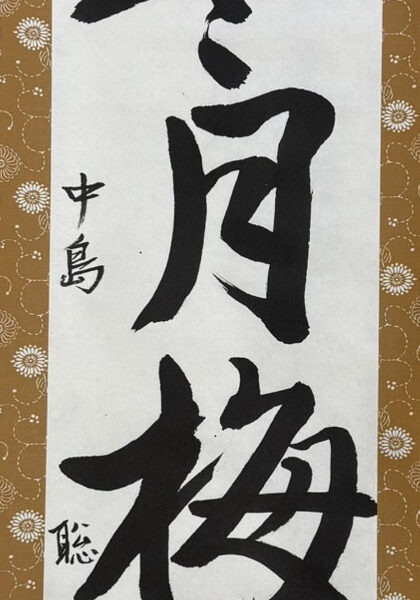 月梅
中島聡